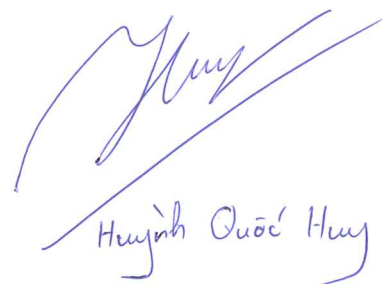 Huy
Huỳnh Quốc Huy